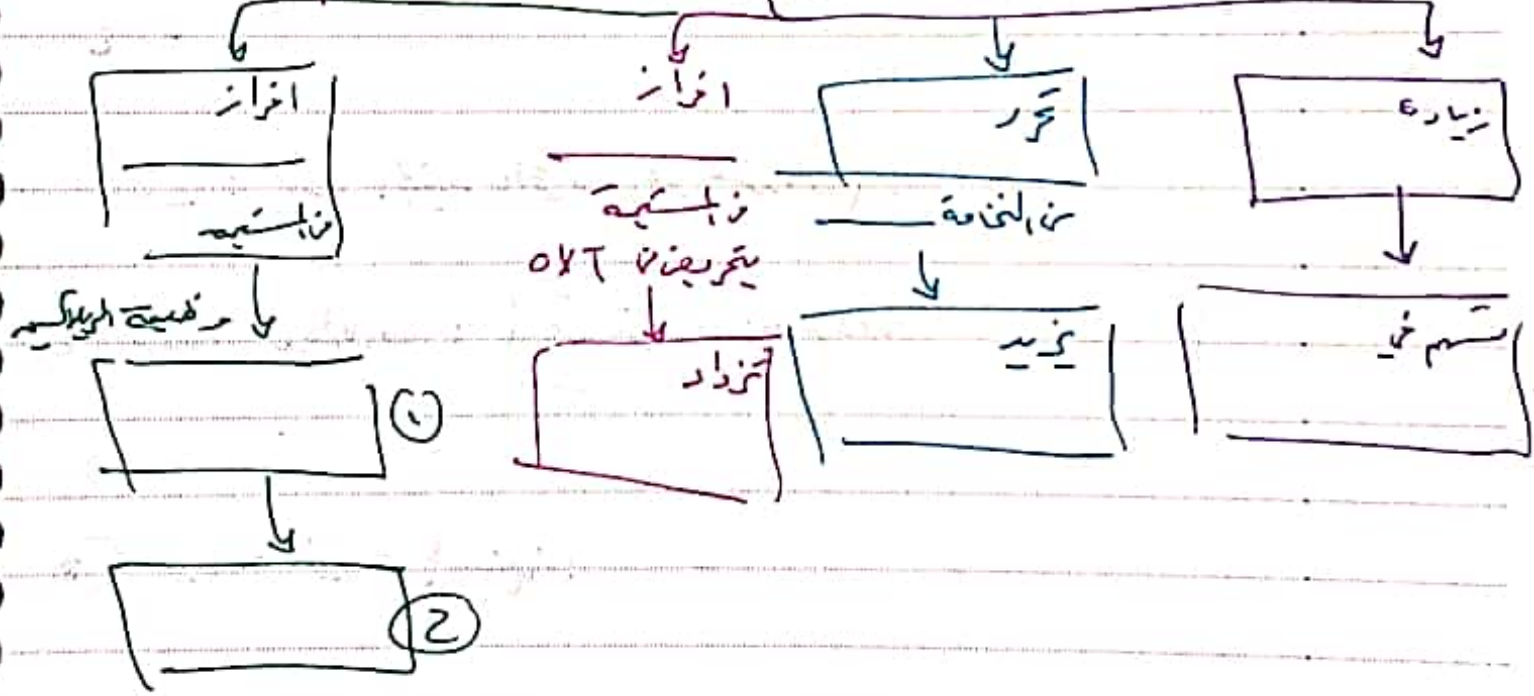 زيادة
تسهم في
تحرر
من النخامة
يزيد
افراز
من المشيمة
بتحريض من OXT
تزداد
افراز
من المشيمة
وظيفة الريلاكسين
1
2